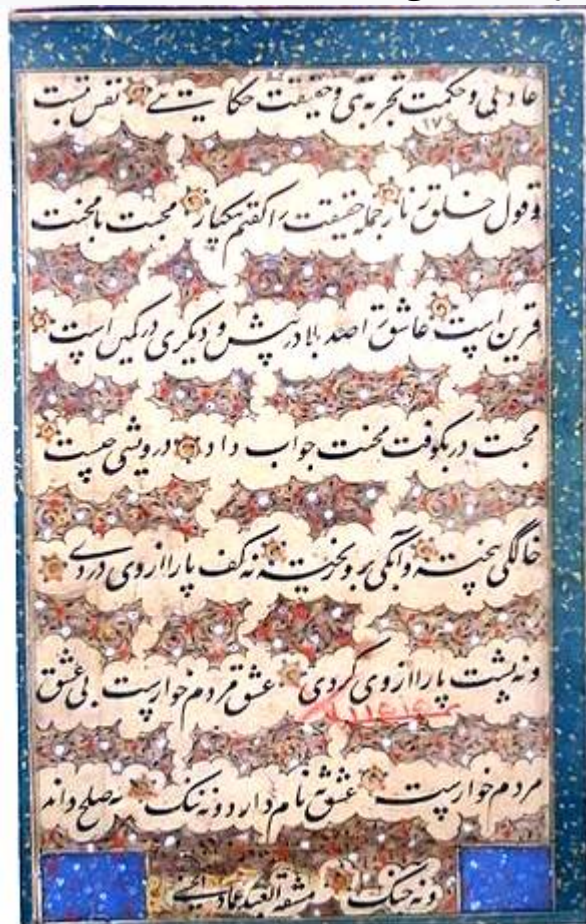 عادتی و حکمت تجربتی و حقیقت حکایتی نفس بتست
و قول خلق زنار جمله حقیقت را گفتم یکبار محبت با محنت
قرین است عاشق را صد بلا در پیش و دیگری در کمین است
محبت در بکوفت محنت جواب داد درویشی چیست
خاکگی بیخته و آبکی برو ریخته نه کف پا را از وی دردی
و نه پشت پا را از وی گردی عشق مردم خوارست بی عشق
مردم خوارست عشق نه نام دارد و نه ننک نه صلح داند
و نه جنک مشقه العبد عماد الحسنی